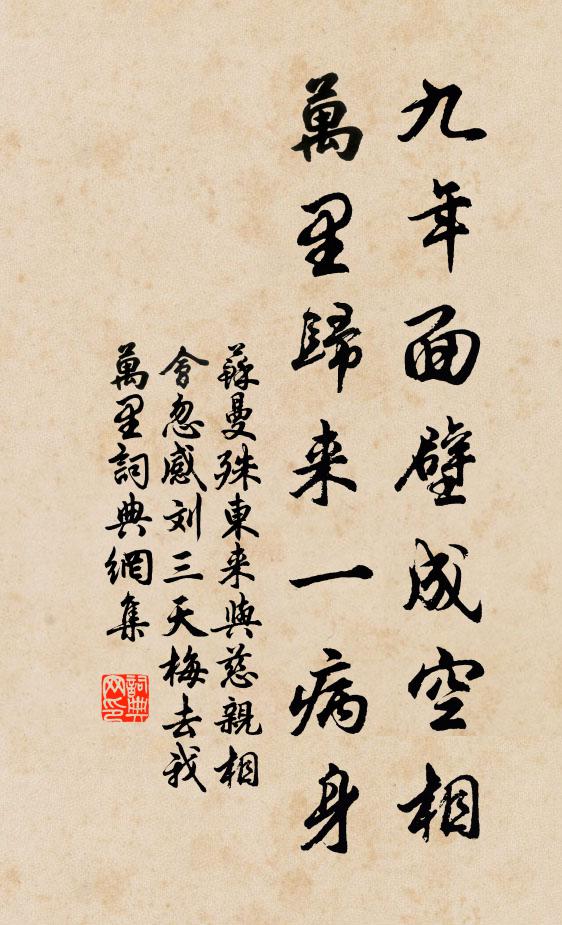 九年面壁成空相
萬里歸来一病身
蘇曼殊東来與慈親相
會忽感刘三天梅去我
萬里詞典網集
詞典
网印